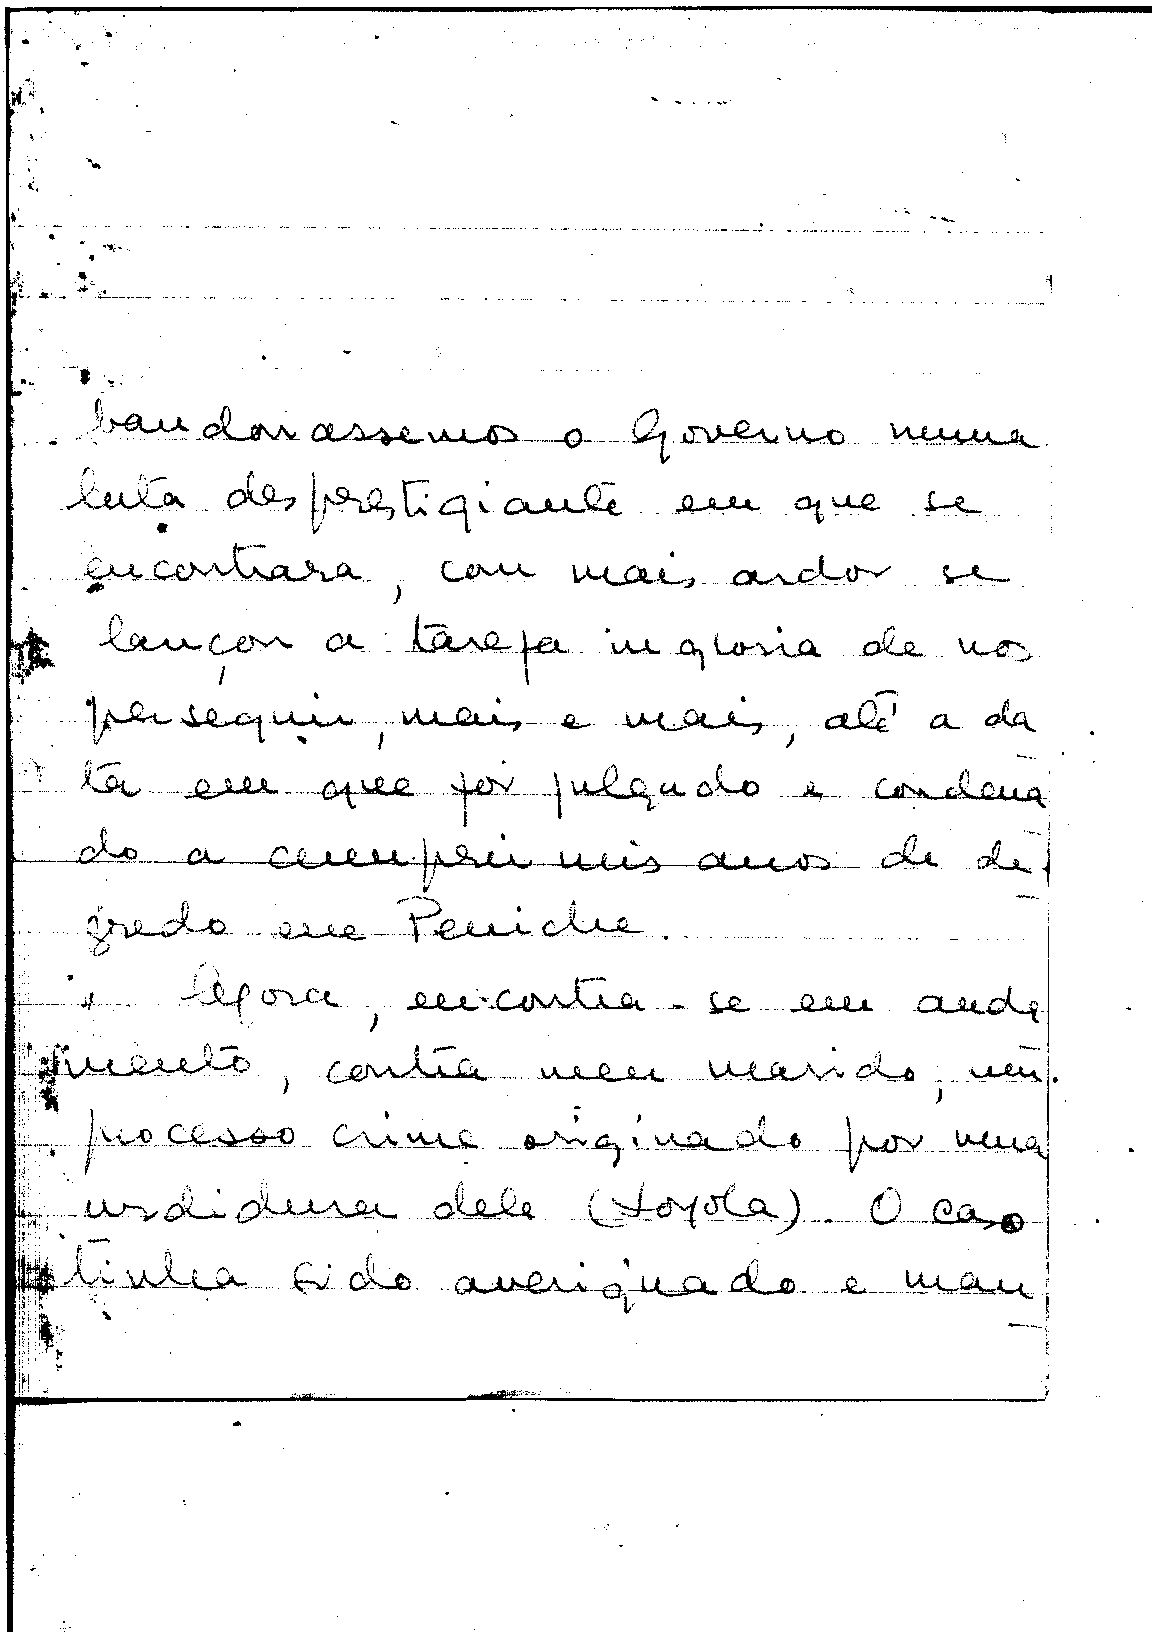 bandonassemos o Governo numa
luta desprestigiante em que se
encontrara, com mais ardor se
lançou a tarefa ingloria de nos
perseguir, mais e mais, até a da
ta em que foi julgado e condena
do a cumprir seis anos de de
gredo em Peniche.
Agora, encontra-se em anda
mento, contra meu marido, um
processo crime originado por uma
urdidura dele (Loyola). O caso
tinha sido averiguado e man